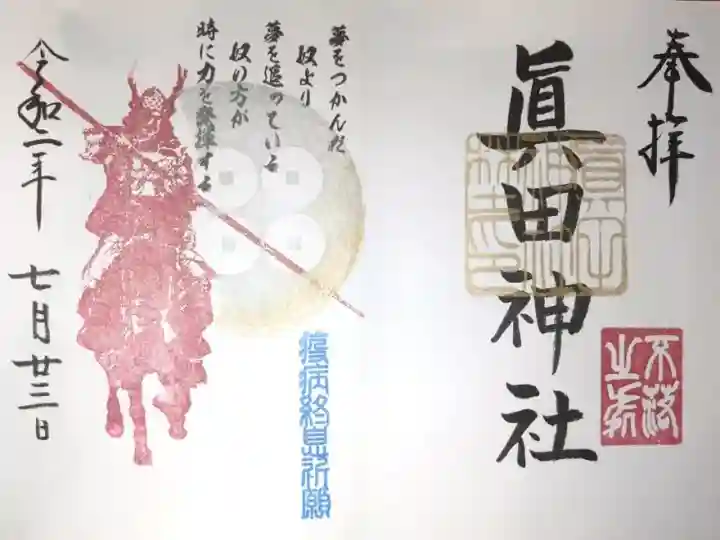 奉拝
眞田神社
不落
夢をつかんだ
奴より
夢を追っている
奴の方が
時に力を発揮する
疫病終息祈願
令和二年
七月廿三日